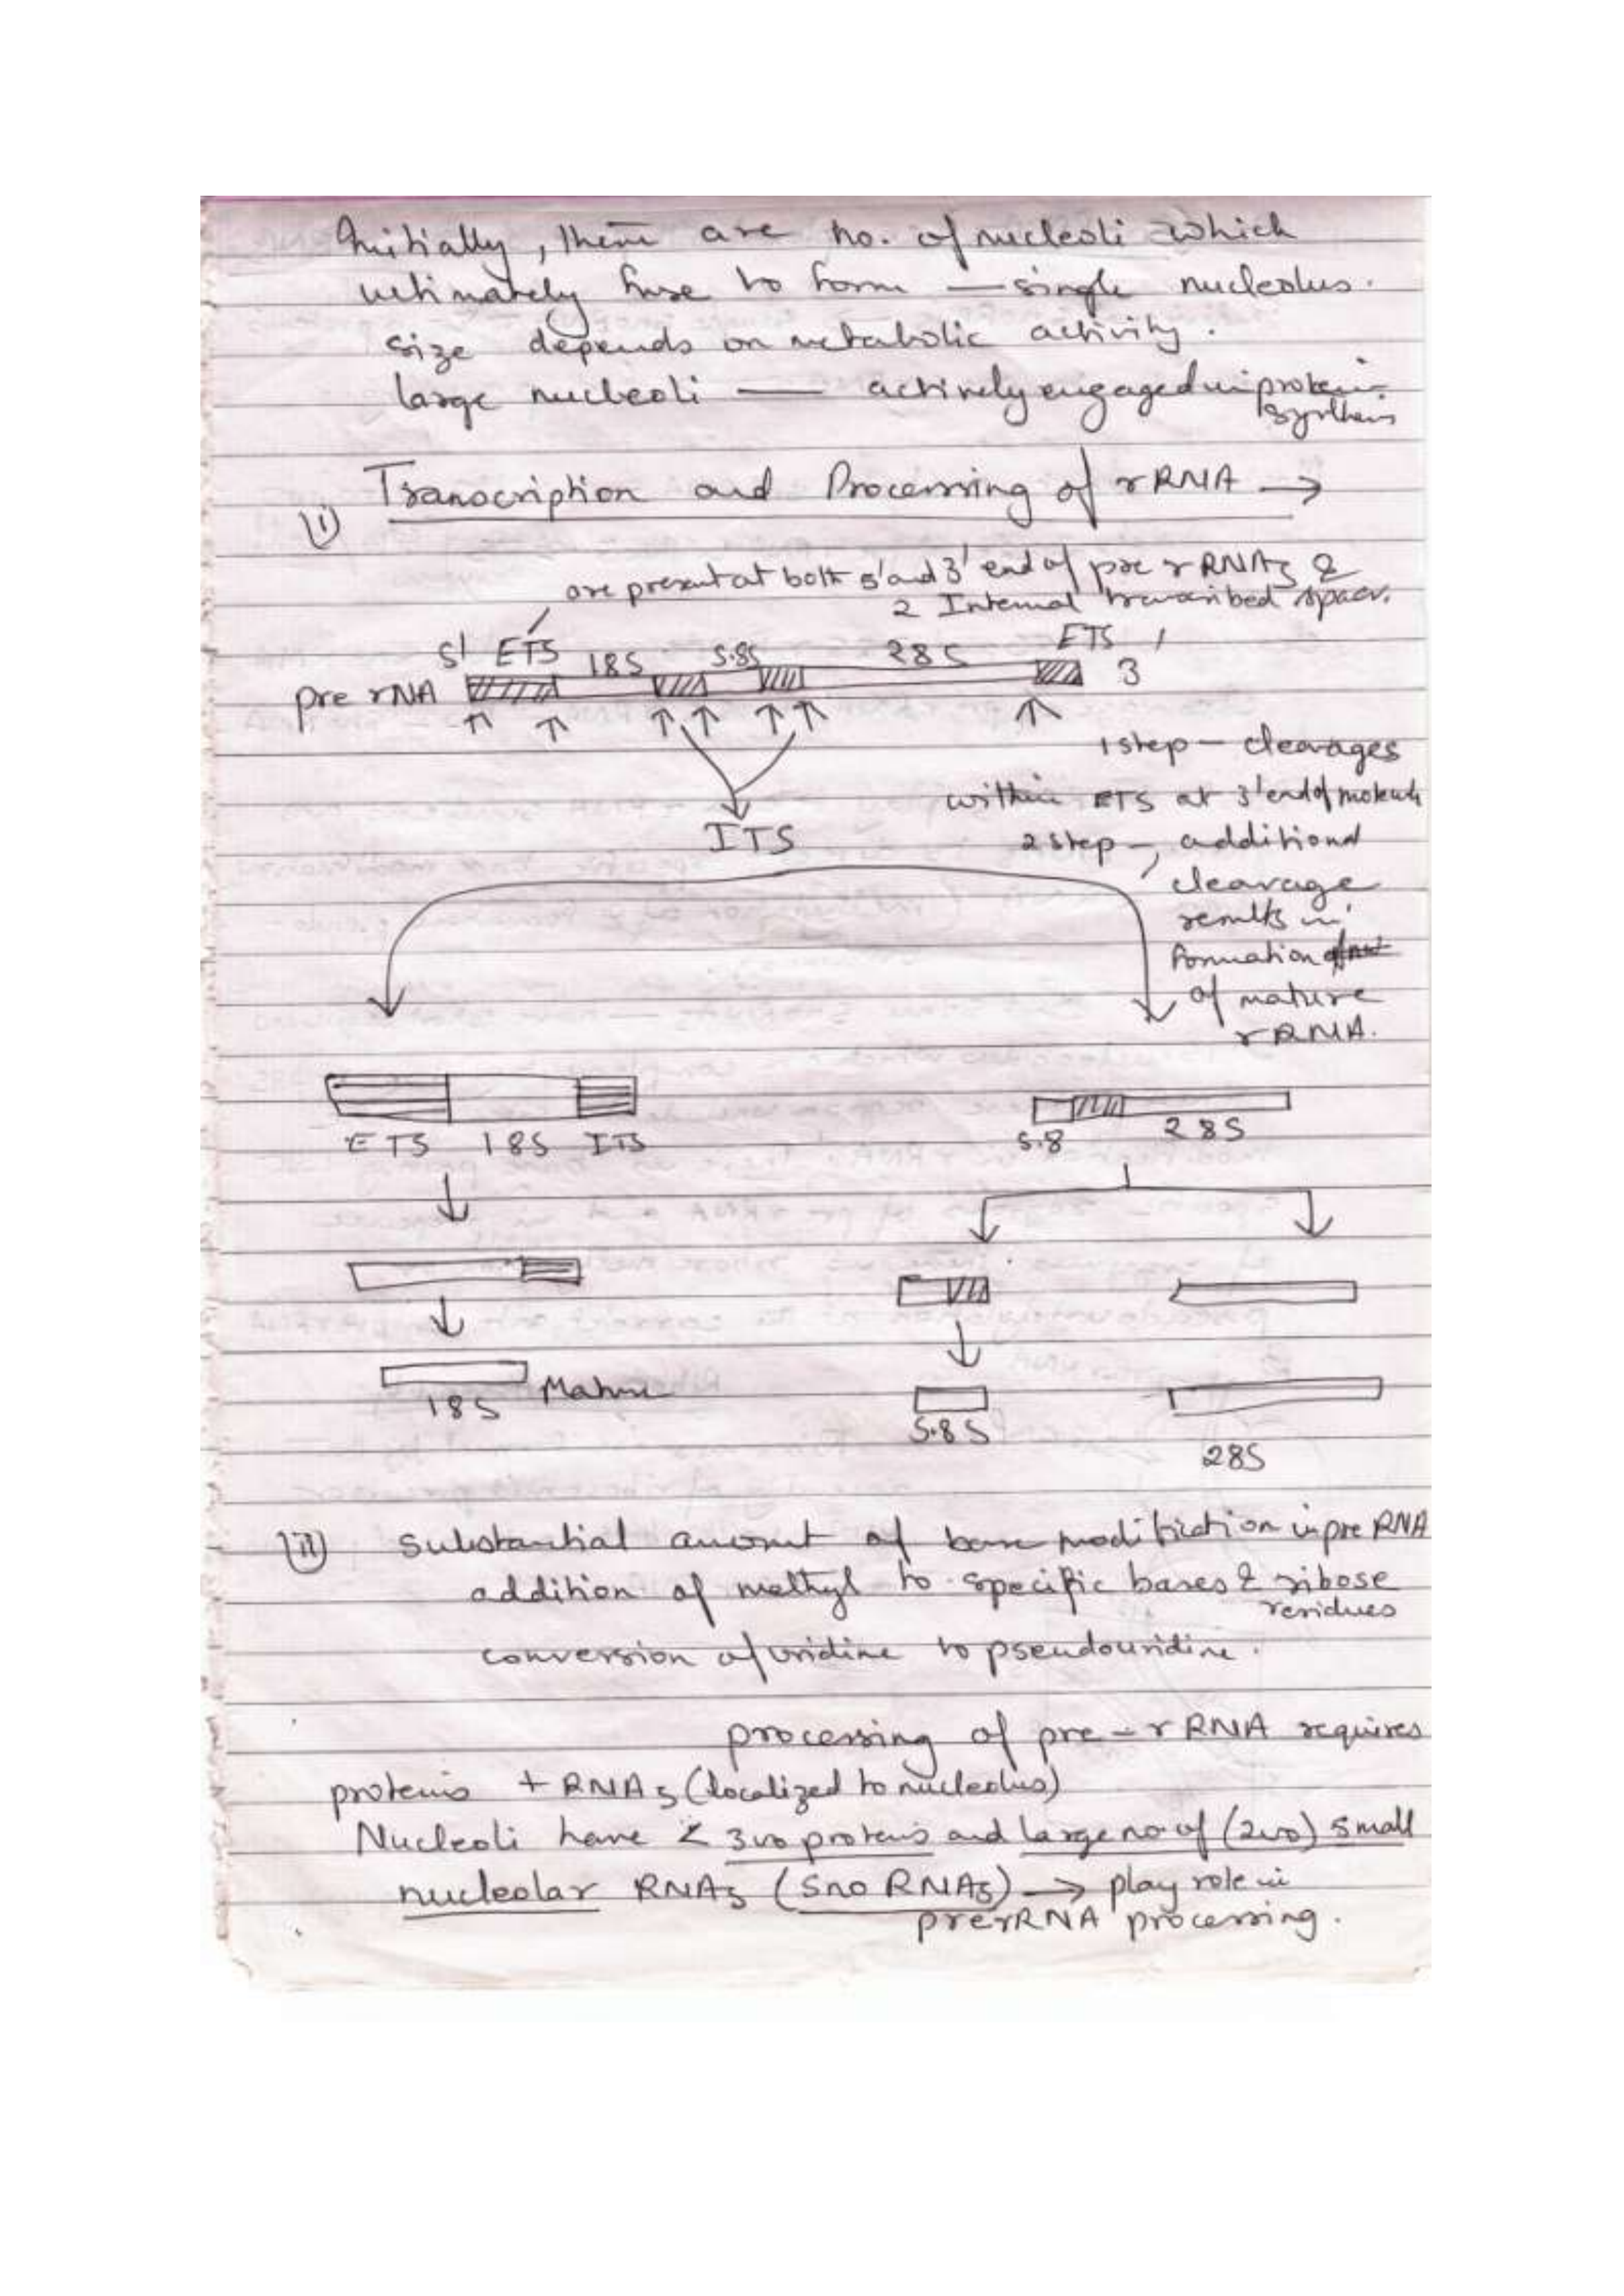 Initially, there are no. of nucleoli which
ultimately fuse to form — single nucleolus.
size depends on metabolic activity.
large nucleoli — actively engaged in protein
synthesis
Transcription and Processing of rRNA →
(i)
are present at both 5' and 3' end of pre rRNAs &
2 Internal transcribed spacer.
5' ETS 18S 5.8S 28S ETS
pre rNA 3'
1 step — cleavages
within ETS at 3' end of molecule
ITS
2 step — additional
cleavage
results in
formation
of mature
rRNA.
ETS 18S ITS
5.8 28S
18S Mature
5.8S
28S
(ii) Substantial amount of base modification in pre RNA
addition of methyl to specific bases & ribose
residues
conversion of uridine to pseudouridine.
processing of pre-rRNA requires
proteins + RNAs (localized to nucleolus)
Nucleoli have < 300 proteins and large no of (200) small
nucleolar RNAs (Sno RNAs) → play role in
prerRNA processing.